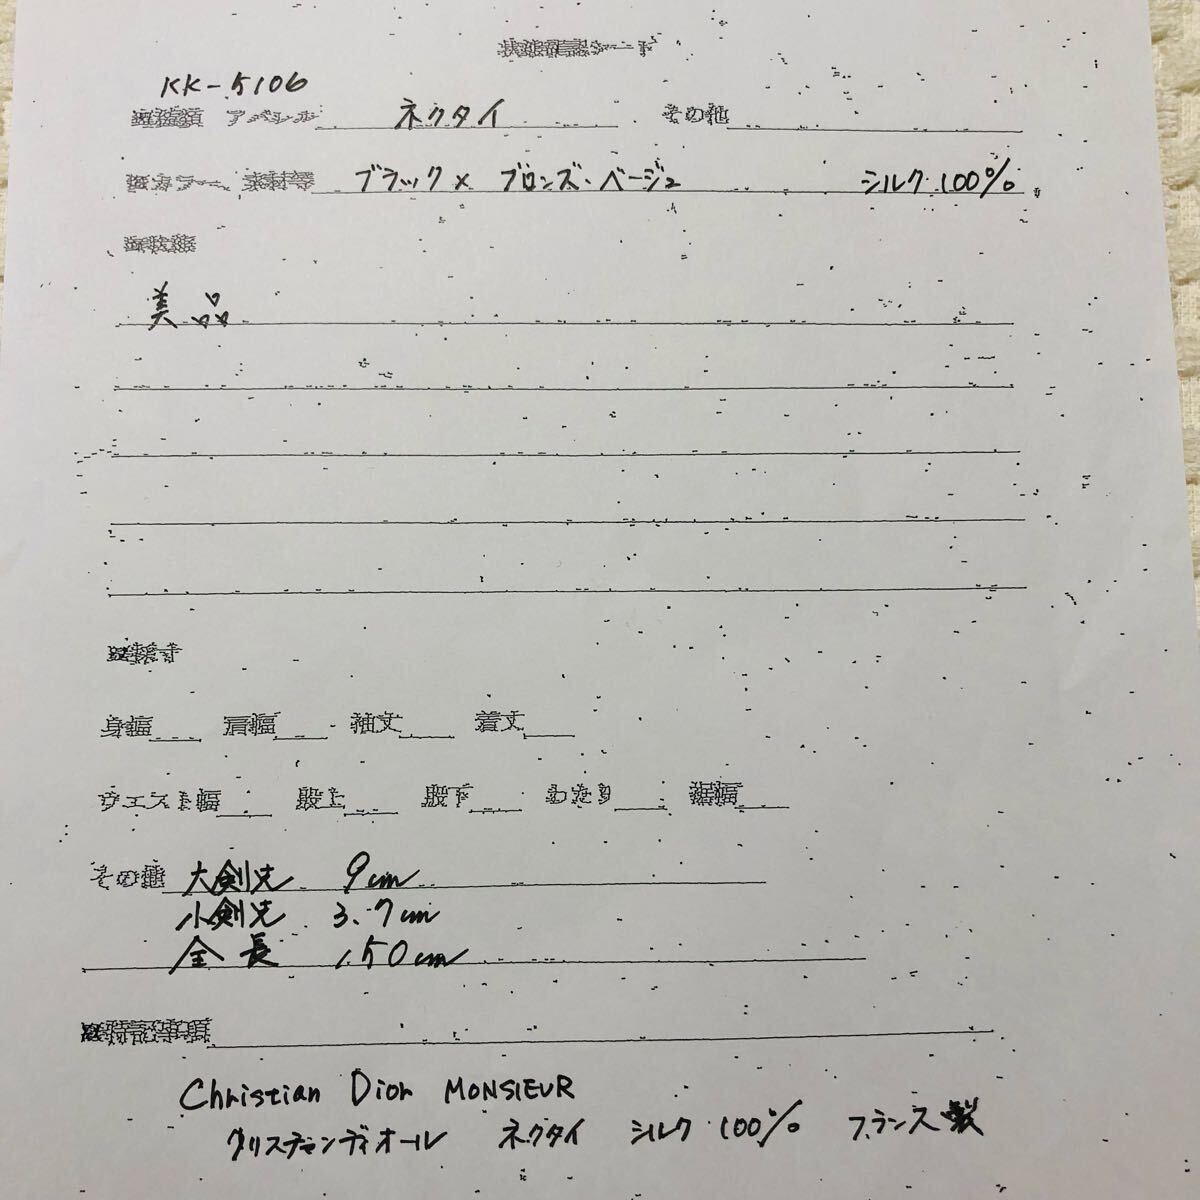 状態確認シート
KK-5106
アパレル ネクタイ その他
カラー、素材等 ブラック× ブロンズ・ベージュ シルク 100%
状態
美品
採寸
身幅 肩幅 袖丈 着丈
ウエスト幅 股上 股下 わたり 裾幅
その他 大剣先 9cm
小剣先 3.7cm
全長 150cm
特記事項
Christian Dior MONSIEUR
クリスチャンディオール ネクタイ シルク 100% フランス製